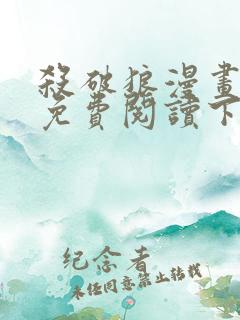 殺破狼漫畫
免費閱讀下
纪念者
未经同意禁止转载